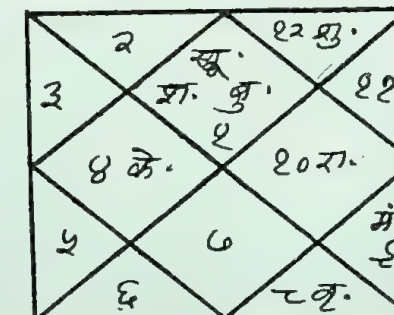 २ सू. १२ शु.
३ श. बु. ११
१
४ के. १० रा.
५ ७ मं
९
६ ८ बृ.